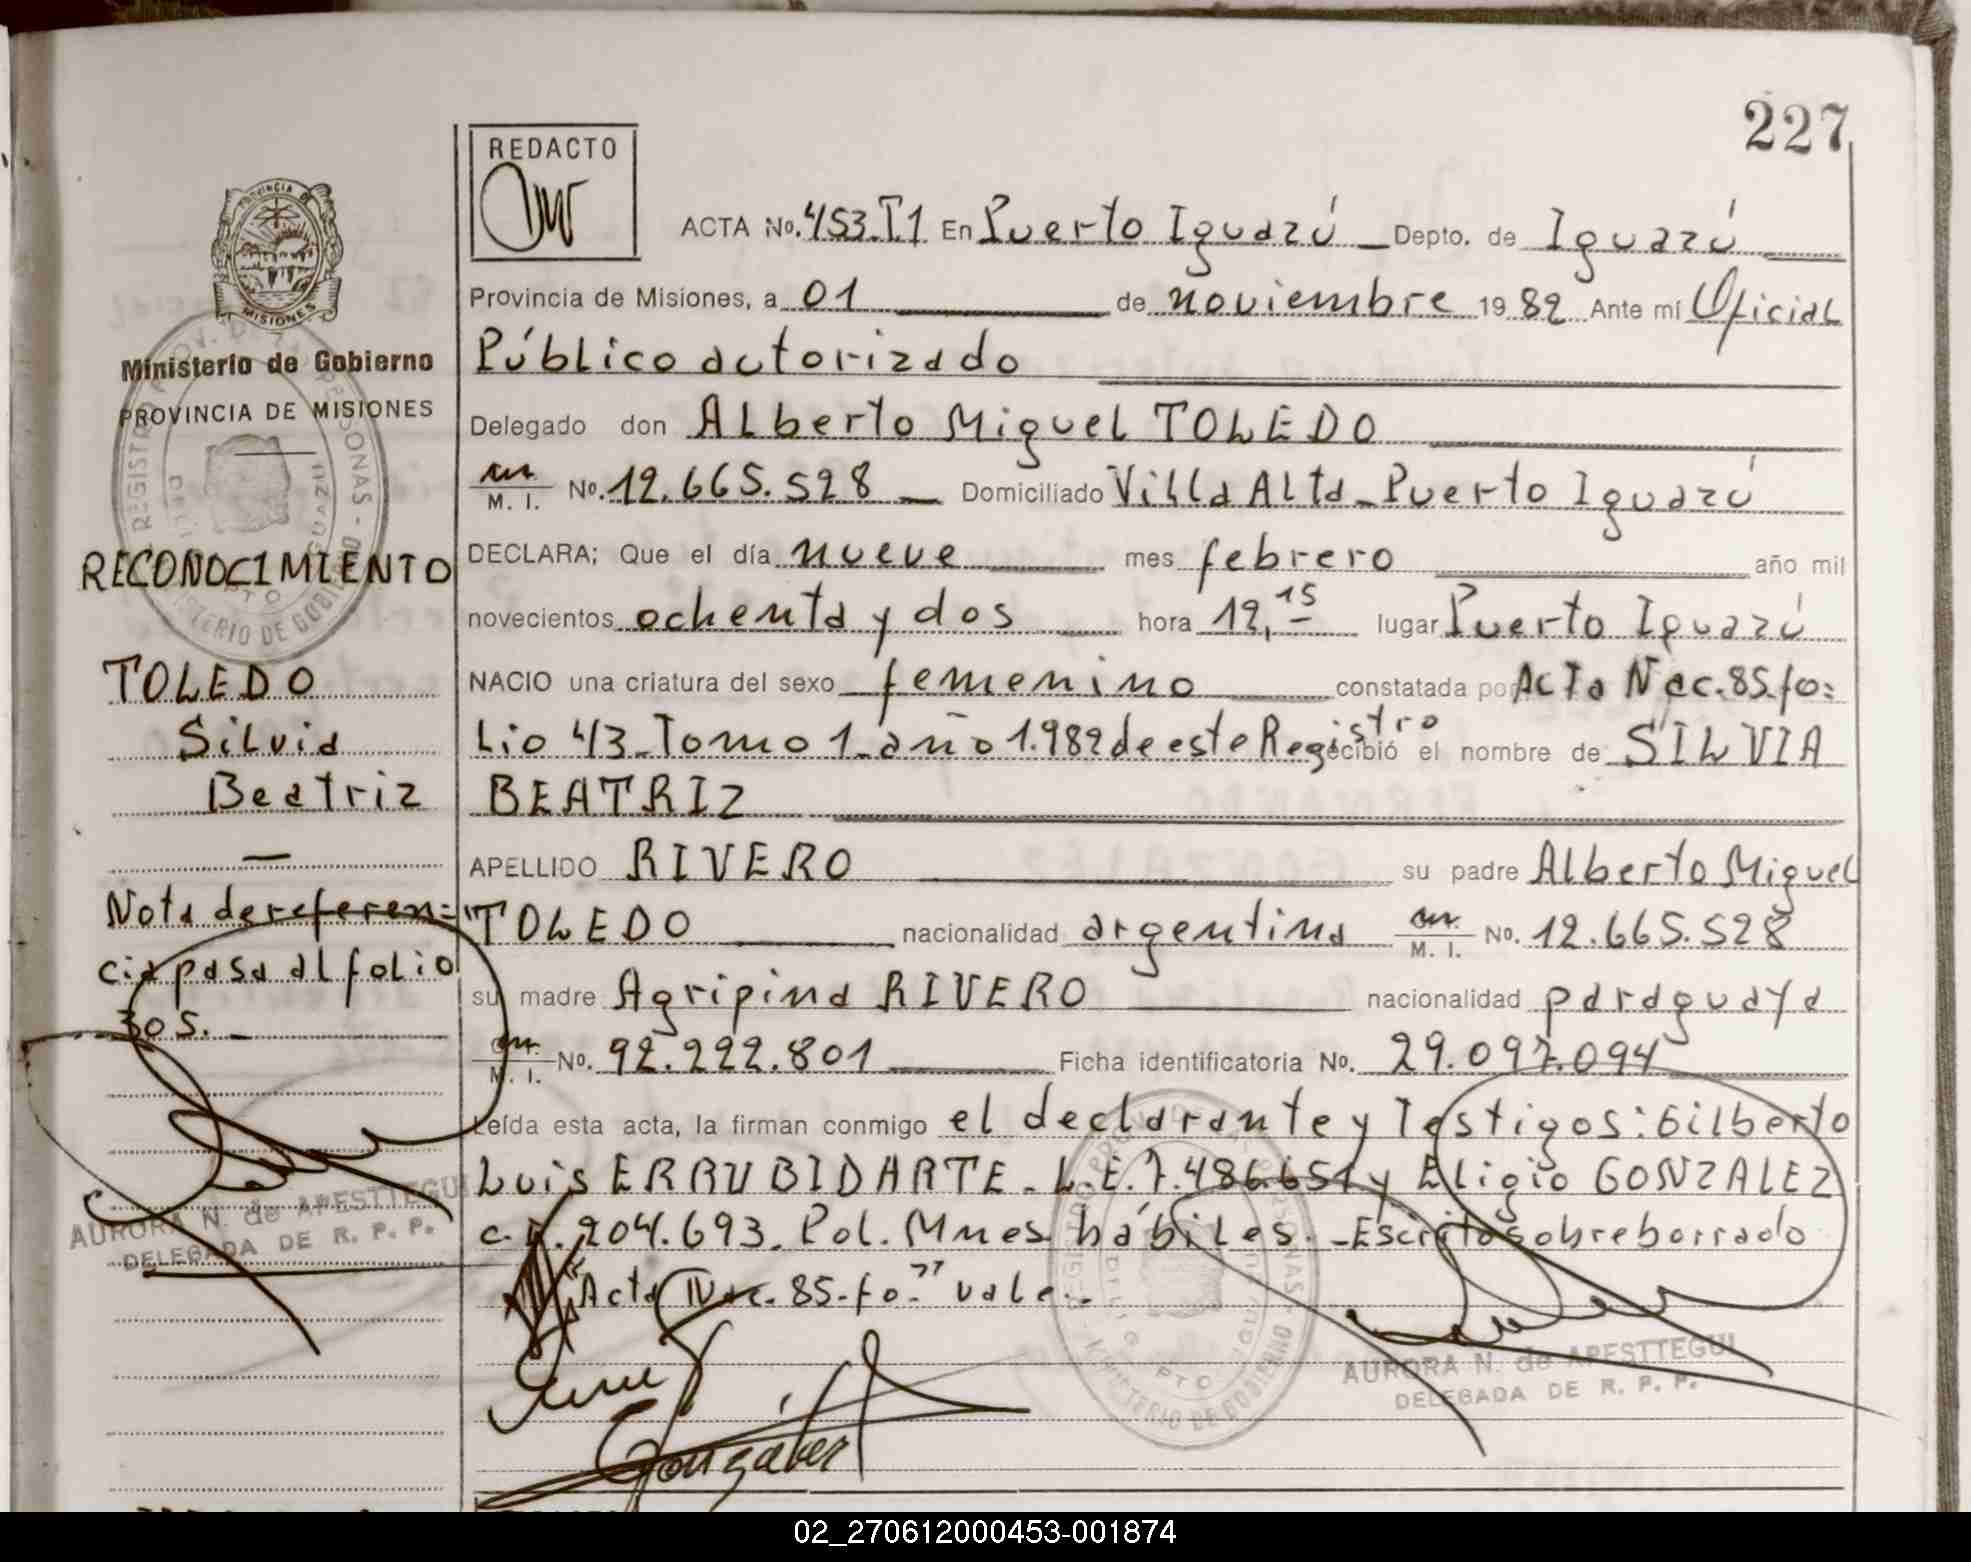 227
REDACTO
ACTA No. 453.T1 En Puerto Iguazú Depto. de Iguazú
Provincia de Misiones, a 01 de noviembre 1982 Ante mí Oficial
Público autorizado
Delegado don Alberto Miguel TOLEDO
M. I. No. 12.665.528 Domiciliado Villa Alta - Puerto Iguazú
DECLARA; Que el día nueve mes febrero año mil
novecientos ochenta y dos hora 12,15 lugar Puerto Iguazú
NACIO una criatura del sexo femenino constatada por Acta Nac. 85. fo=
lio 43 - Tomo 1 - año 1.982 de este Registro recibió el nombre de SILVIA
BEATRIZ
APELLIDO RIVERO su padre Alberto Miguel
TOLEDO nacionalidad argentina M. I. No. 12.665.528
su madre Agripina RIVERO nacionalidad paraguaya
M. I. No. 92.222.801 Ficha identificatoria No. 29.097.094
Leída esta acta, la firman conmigo el declarante y Testigos: Gilberto
Luis ERRUBIDARTE - L.E. 7.486.651 y Eligio GONZALEZ
c.I. 204.693. Pol. Mnes hábiles. - Escrito sobreborrado
"Acta Nac. 85 - fo-" vale.-
Gonzalez
AURORA N. de APESTTEGUI
DELEGADA DE R. P. P.
PROVINCIA DE
MISIONES
Ministerio de Gobierno
PROVINCIA DE MISIONES
RECONOCIMIENTO
TOLEDO
Silvia
Beatriz
Nota de referen=
cia pasa al folio
305.-
AURORA N. de APESTTEGUI
DELEGADA DE R. P. P.
02_270612000453-001874